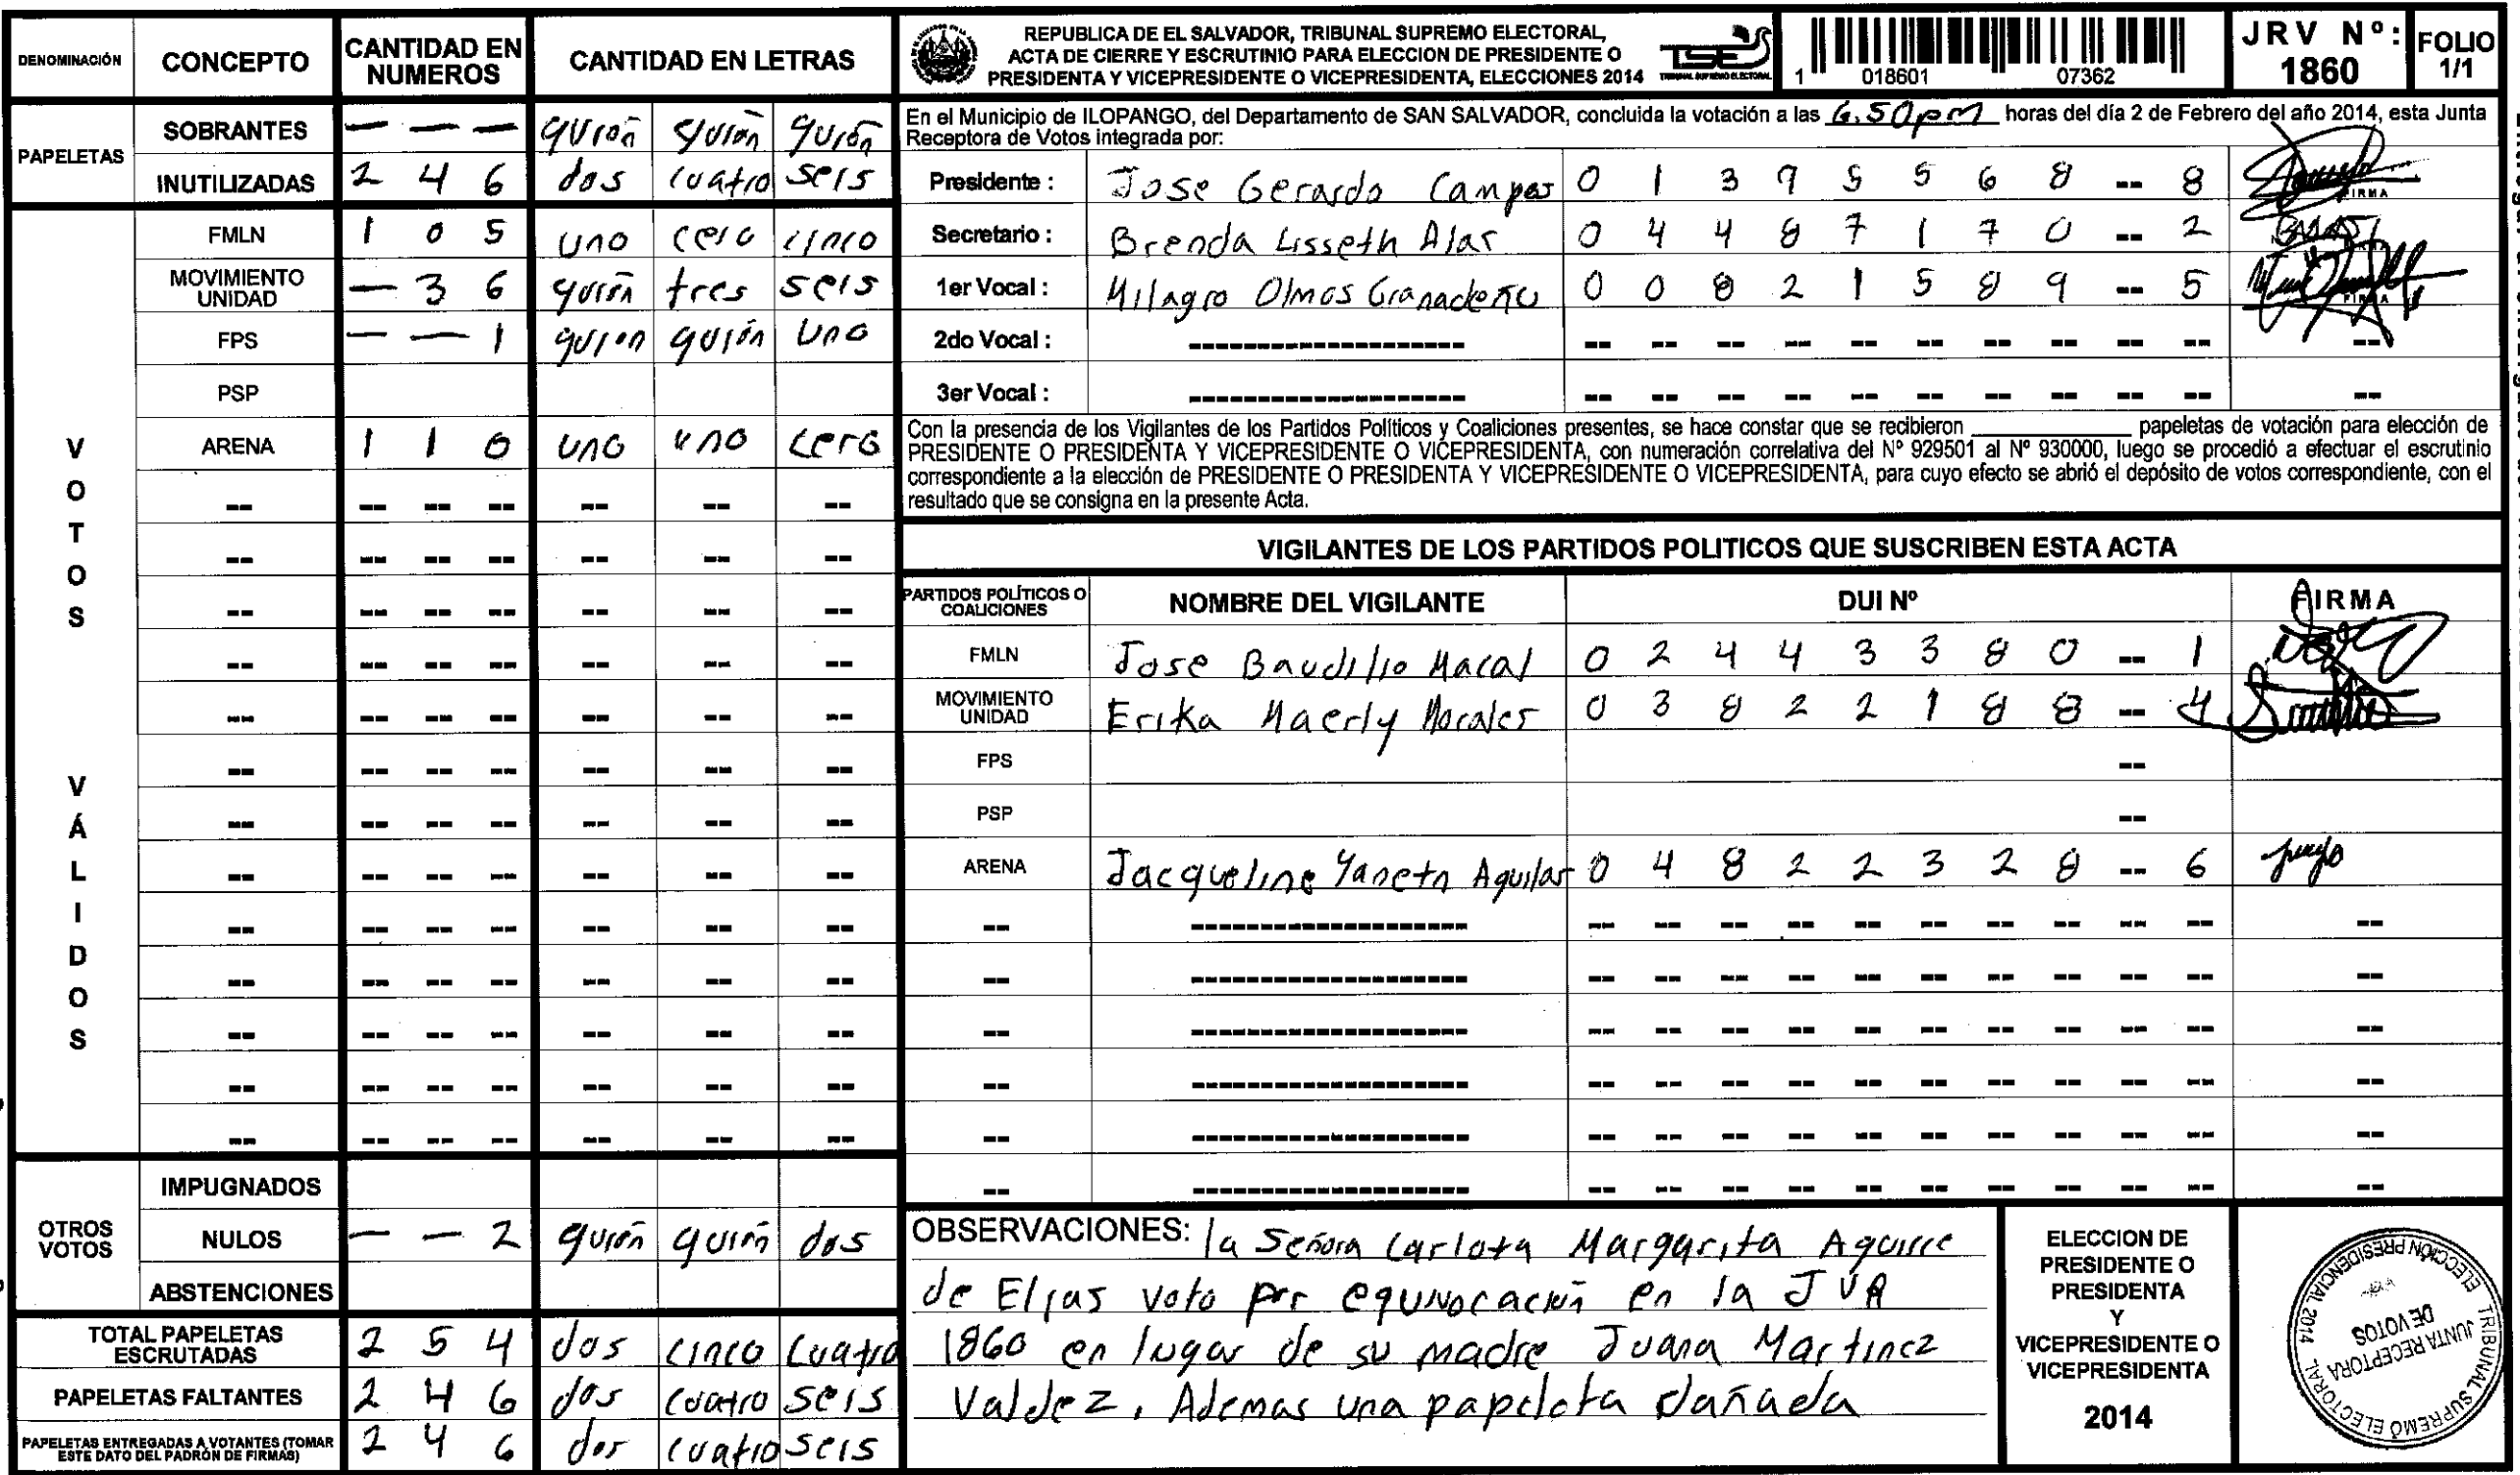 DENOMINACIÓN CONCEPTO CANTIDAD EN NUMEROS CANTIDAD EN LETRAS
PAPELETAS
SOBRANTES — — — guión guión guión
INUTILIZADAS 2 4 6 dos cuatro seis
VOTOS VÁLIDOS
FMLN 1 0 5 uno cero cinco
MOVIMIENTO UNIDAD — 3 6 guión tres seis
FPS — — 1 guion guión uno
PSP
ARENA 1 1 0 uno uno cero
-- -- -- -- -- -- --
-- -- -- -- -- -- --
-- -- -- -- -- -- --
-- -- -- -- -- -- --
-- -- -- -- -- -- --
-- -- -- -- -- -- --
-- -- -- -- -- -- --
-- -- -- -- -- -- --
-- -- -- -- -- -- --
-- -- -- -- -- -- --
-- -- -- -- -- -- --
-- -- -- -- -- -- --
-- -- -- -- -- -- --
OTROS VOTOS
IMPUGNADOS
NULOS — — 2 guión guión dos
ABSTENCIONES
TOTAL PAPELETAS ESCRUTADAS 2 5 4 dos cinco cuatro
PAPELETAS FALTANTES 2 4 6 dos cuatro seis
PAPELETAS ENTREGADAS A VOTANTES (TOMAR ESTE DATO DEL PADRÓN DE FIRMAS) 2 4 6 dos cuatro seis
REPUBLICA DE EL SALVADOR, TRIBUNAL SUPREMO ELECTORAL,
ACTA DE CIERRE Y ESCRUTINIO PARA ELECCION DE PRESIDENTE O
PRESIDENTA Y VICEPRESIDENTE O VICEPRESIDENTA, ELECCIONES 2014
TSE
TRIBUNAL SUPREMO ELECTORAL
1 018601 07362
JRV Nº: 1860
FOLIO 1/1
En el Municipio de ILOPANGO, del Departamento de SAN SALVADOR, concluida la votación a las 6.50pm horas del día 2 de Febrero del año 2014, esta Junta
Receptora de Votos integrada por:
Presidente : Jose Gerardo Campos 0 1 3 9 5 5 6 8 -- 8 FIRMA
Secretario : Brenda Lisseth Alas 0 4 4 8 7 1 7 0 -- 2
1er Vocal : Milagro Olmos Granadeño 0 0 8 2 1 5 8 9 -- 5 FIRMA
2do Vocal : -------------------- -- -- -- -- -- -- -- -- -- -- --
3er Vocal : -------------------- -- -- -- -- -- -- -- -- -- -- --
Con la presencia de los Vigilantes de los Partidos Políticos y Coaliciones presentes, se hace constar que se recibieron ________ papeletas de votación para elección de
PRESIDENTE O PRESIDENTA Y VICEPRESIDENTE O VICEPRESIDENTA, con numeración correlativa del Nº 929501 al Nº 930000, luego se procedió a efectuar el escrutinio
correspondiente a la elección de PRESIDENTE O PRESIDENTA Y VICEPRESIDENTE O VICEPRESIDENTA, para cuyo efecto se abrió el depósito de votos correspondiente, con el
resultado que se consigna en la presente Acta.
VIGILANTES DE LOS PARTIDOS POLITICOS QUE SUSCRIBEN ESTA ACTA
PARTIDOS POLÍTICOS O COALICIONES NOMBRE DEL VIGILANTE DUI Nº FIRMA
FMLN Jose Baudilio Macal 0 2 4 4 3 3 8 0 -- 1
MOVIMIENTO UNIDAD Erika Maerly Morales 0 3 8 2 2 1 8 8 -- 4
FPS --
PSP --
ARENA Jacqueline Yaneth Aguilar 0 4 8 2 2 3 2 8 -- 6
-- -------------------- -- -- -- -- -- -- -- -- -- -- --
-- -------------------- -- -- -- -- -- -- -- -- -- -- --
-- -------------------- -- -- -- -- -- -- -- -- -- -- --
-- -------------------- -- -- -- -- -- -- -- -- -- -- --
-- -------------------- -- -- -- -- -- -- -- -- -- -- --
-- -------------------- -- -- -- -- -- -- -- -- -- -- --
OBSERVACIONES: la Señora Carlota Margarita Aguirre
de Elias voto por equivocación en la JVR
1860 en lugar de su madre Juana Martinez
Valdez, Ademas una papeleta dañada
ELECCION DE
PRESIDENTE O
PRESIDENTA
Y
VICEPRESIDENTE O
VICEPRESIDENTA
2014
TRIBUNAL SUPREMO ELECTORAL
ELECCIÓN PRESIDENCIAL 2014
JUNTA RECEPTORA
DE VOTOS